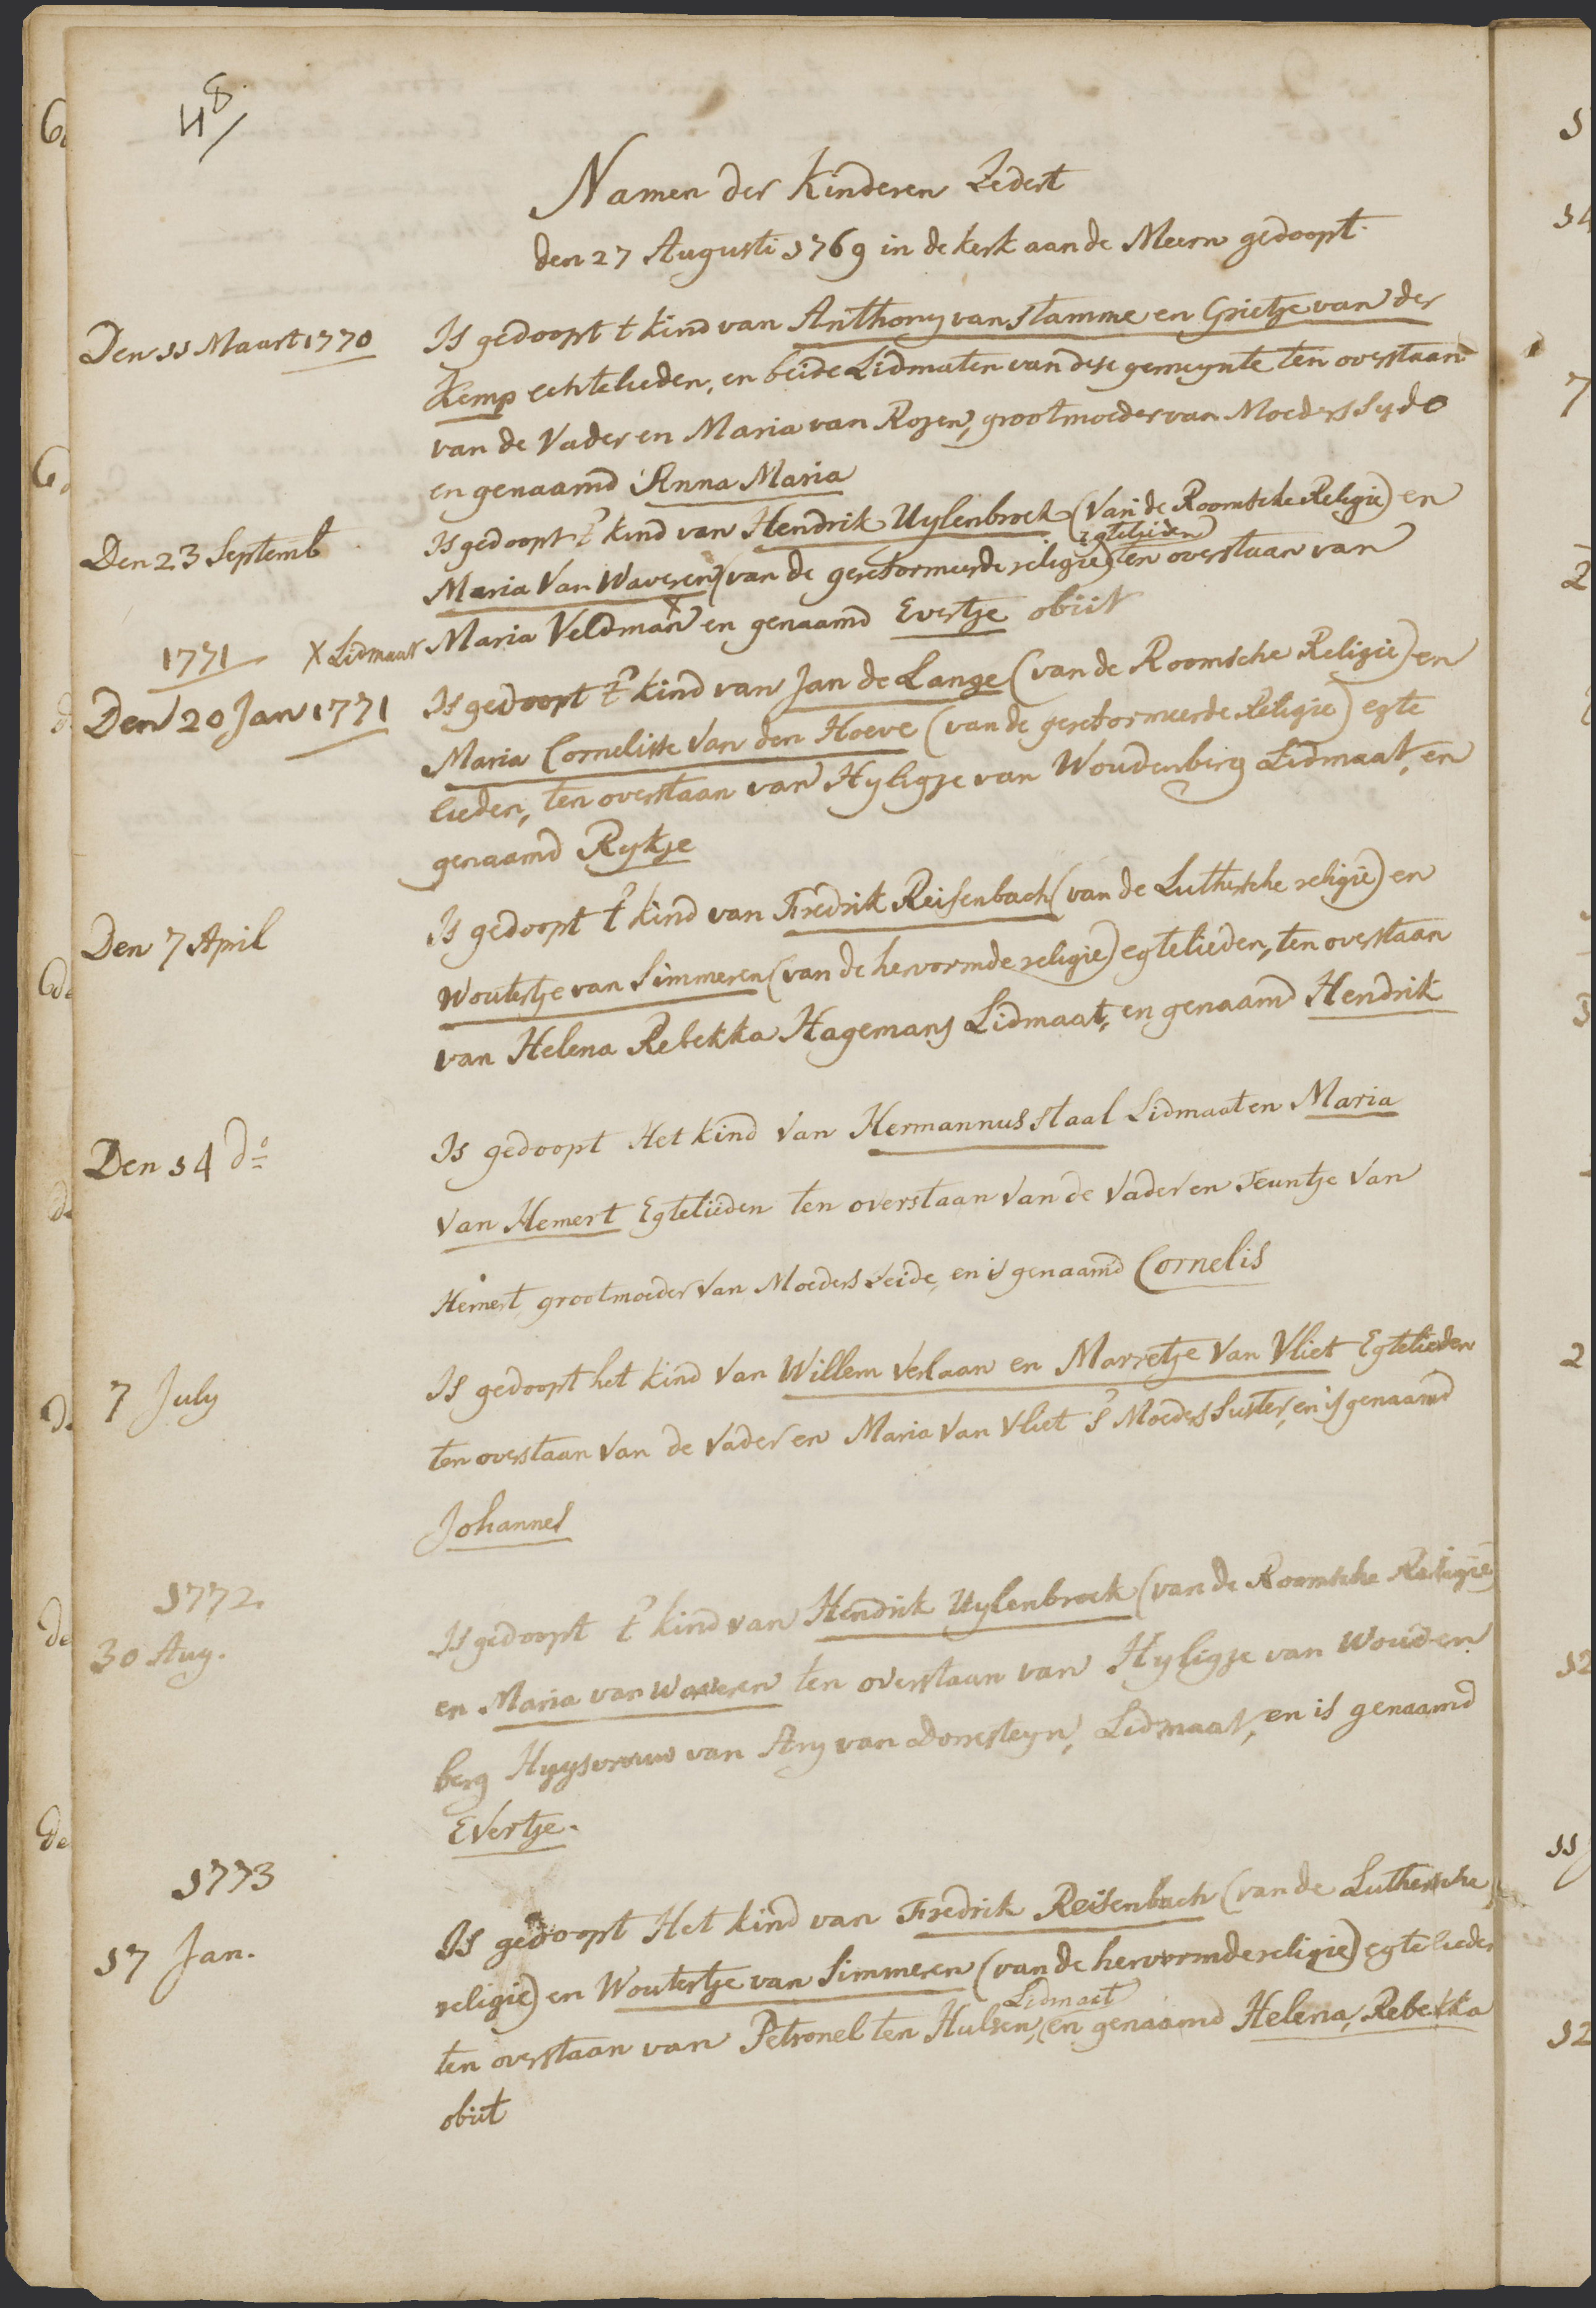 48/
Namen der Kinderen Zedert
den 27 Augusti 1769 in de kerk aan de Meern gedoopt.
Den 11 Maart 1770 Is gedoopt t kind van Anthony van Stamme en Grietje van der
Kemp echtelieden, en beide Lidmaten van dese gemeynte ten overstaan
van de Vader en Maria van Rozen, grootmoeder van Moeders syde
en genaamd Anna Maria
Den 23 Septemb Is gedoopt t' kind van Hendrik Uylenbroek (Van de Roomsche Religie) en
egtelieden
Maria Van Waveren (van de gereformeerde religie) ten overstaan van
X Lidmaat Maria Veldman X en genaamd Evertje obiit
1771
Den 20 Jan 1771 Is gedoopt t' kind van Jan de Lange (van de Roomsche Religie) en
Maria Cornelisse Van den Hoeve (van de gereformeerde Religie) egte
lieden, ten overstaan van Hyligje van Woudenberg Lidmaat, en
genaamd Rykje
Den 7 April Is gedoopt t' kind van Fredrik Reisenbach (van de Luthersche religie) en
Woutertje van Simmeren (van de hervormde religie) egtelieden, ten overstaan
van Helena Rebekka Hagemans Lidmaat, en genaamd Hendrik
Den 14 do Is gedoopt Het kind Van Hermannus Staal Lidmaat en Maria
Van Hemert Egtelieden ten overstaan Van de Vader en Teuntje Van
Hemert grootmoeder Van Moeders Seide, en is genaamd Cornelis
7 July Is gedoopt het kind Van Willem Verlaan en Marretje Van Vliet Egtelieden
ten overstaan Van de Vader en Maria Van Vliet S' Moeders Suster, en is genaamd
Johannes
1772.
30 Aug. Is gedoopt t' kind van Hendrik Uylenbroek (van de Roomsche Religie
en Maria van Waveren ten overstaan van Hyligje van Wouden
berg Huysvrouw van Ary van Dorresteyn, Lidmaat, en is genaamd
Evertje.
1773
17 Jan. Is gedoopt Het kind van Fredrik Reisenbach (van de Luthersche
religie) en Woutertje van Simmeren (van de hervormde religie) egtelieden
Lidmaat
ten overstaan van Petronel ten Hulsen, en genaamd Helena, Rebekka
obiit